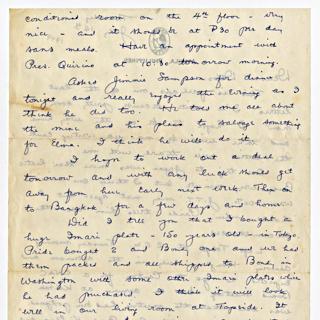 conditioned room on the 4th floor - very
nice - and it should be at ₱30 per day
sans meals. Have an appointment with
Pres. Quirino at 10:30 tomorrow morning.
Asked Jimmie Sampson for dinner
tonight and really enjoyed the evening as I
think he did too. He told me all about
the mine and his plans to salvage something
for Elma. I think he will do it.
I hope to work out a deal
tomorrow and with any luck should get
away from here early next week. Then on
to Bangkok for a few days and home.
Did I tell you that I bought a
huge Imari plate 150 years old - in Tokyo.
Pride bought 2 and Bondy one and we had
them packed and all shipped to Bondy in
Washington with some other Imari plates which
he had purchased. I think it will look
well in our living room at Topside. It